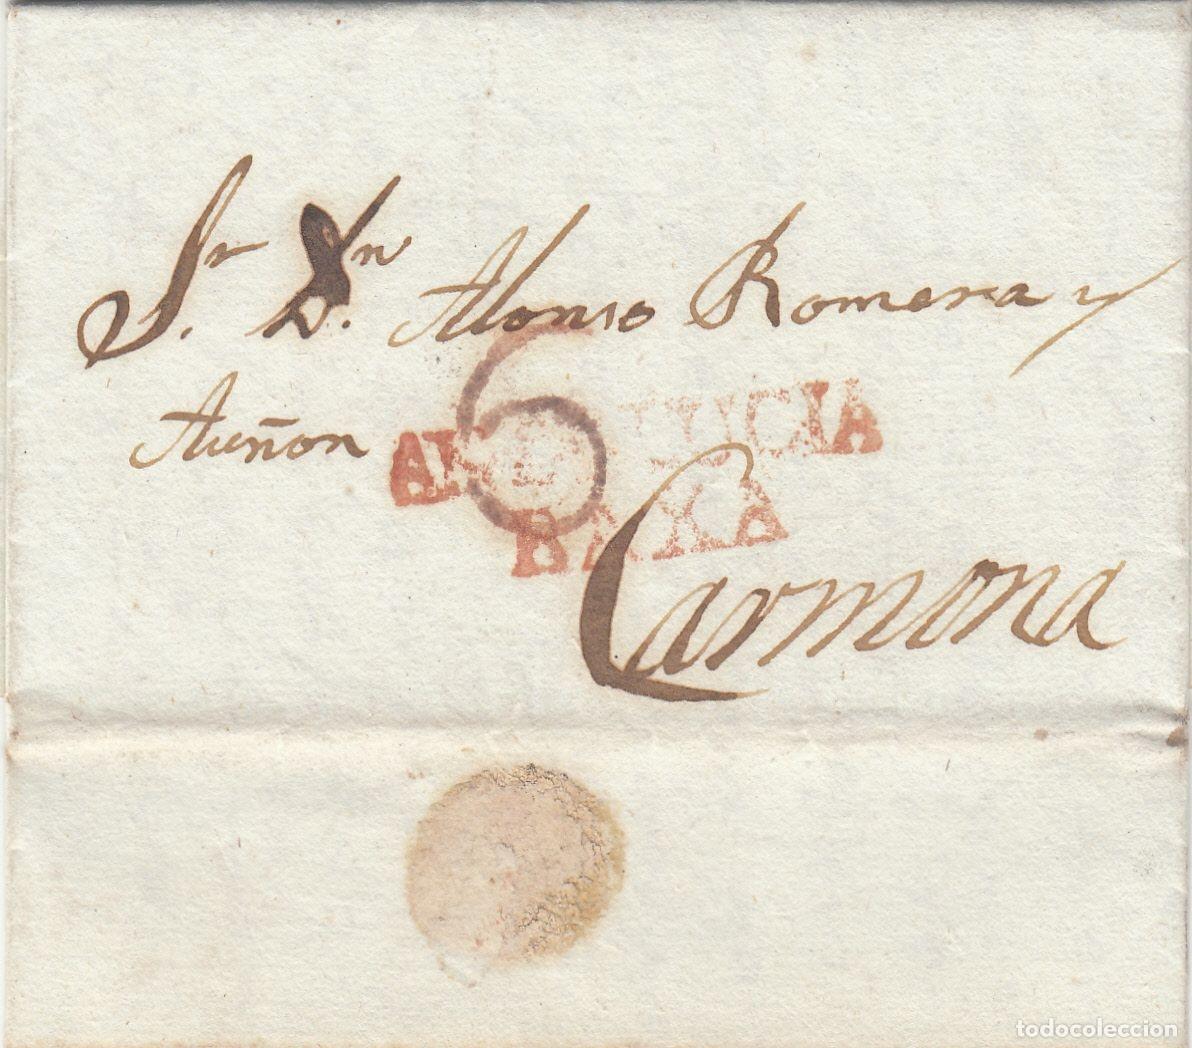 Sr. Dn. Alonso Romera y
Auñon
6
ANDALUCIA
BAXA
Carmona
todocoleccion